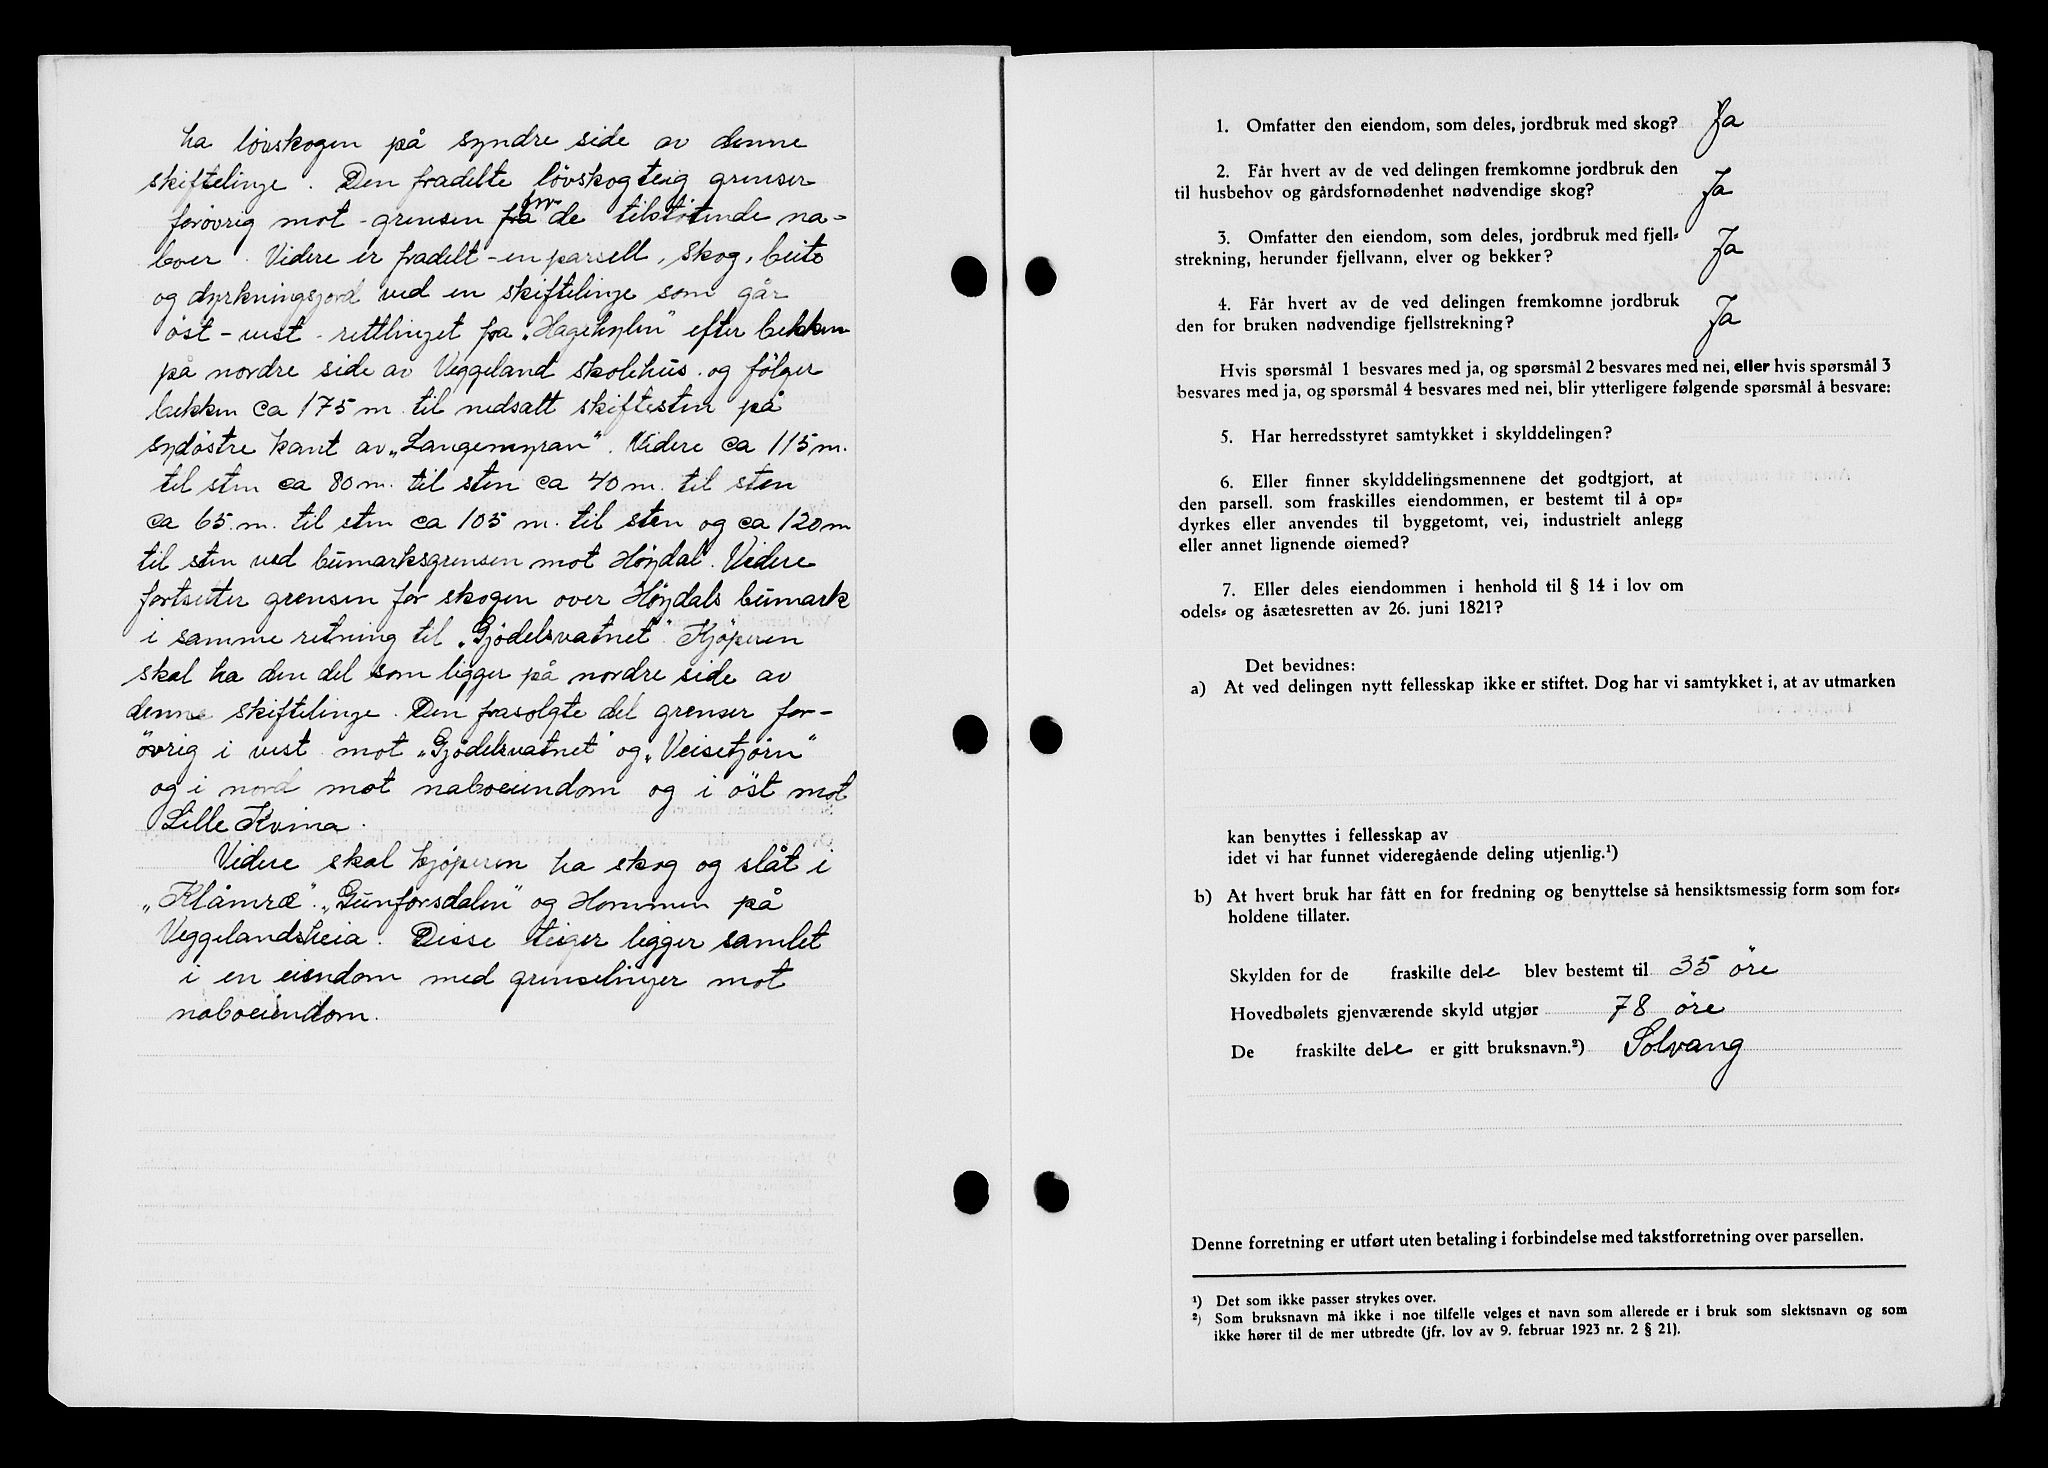 ha løvskogen på syndre side av denne
skiftelinje. Den fradelte løvskogteig grenser
forøvrig mot grensen for de tilstøtende na-
boer. Videre er fradelt en parsell, skog, beite
og dyrkningsjord ved en skiftelinje som går
öst-vest rettlinjet fra „Hagehylen" efter bekken
på nordre side av Veggeland skolehus og fölger
bekken ca 175 m. til nedsatt skiftesten på
sydöstre kant av „Langemyran". Videre ca 115 m.
til sten ca 80 m. til sten ca 40 m. til sten
ca 65. m. til sten ca 105 m. til sten og ca 120 m
til sten ved bumarksgrensen mot Høydal. Videre
fortsetter grensen for skogen over Høydals bumark
i samme retning til „Gjödelsvatnet". Kjöperen
skal ha den del som ligger på nordre side av
denne skiftelinje. Den frasolgte del grenser for-
övrig i vest mot „Gjödelsvatnet" og „Veisetjörn"
og i nord mot naboeiendom og i öst mot
Lille Kvina.
Videre skal kjöperen ha skog og slåt i
„Klåmræ". „Gunforsdalen" og Hommen på
Veggelandsheia. Disse teiger ligger samlet
i en eiendom med grenselinjer mot
naboeiendom.
1. Omfatter den eiendom, som deles, jordbruk med skog? Ja
2. Får hvert av de ved delingen fremkomne jordbruk den
til husbehov og gårdsfornødenhet nødvendige skog? Ja
3. Omfatter den eiendom, som deles, jordbruk med fjell-
strekning, herunder fjellvann, elver og bekker? Ja
4. Får hvert av de ved delingen fremkomne jordbruk
den for bruken nødvendige fjellstrekning? Ja
Hvis spørsmål 1 besvares med ja, og spørsmål 2 besvares med nei, eller hvis spørsmål 3
besvares med ja, og spørsmål 4 besvares med nei, blir ytterligere følgende spørsmål å besvare:
5. Har herredsstyret samtykket i skylddelingen?
6. Eller finner skylddelingsmennene det godtgjort, at
den parsell. som fraskilles eiendommen, er bestemt til å op-
dyrkes eller anvendes til byggetomt, vei, industrielt anlegg
eller annet lignende øiemed?
7. Eller deles eiendommen i henhold til § 14 i lov om
odels- og åsætesretten av 26. juni 1821?
Det bevidnes:
a) At ved delingen nytt fellesskap ikke er stiftet. Dog har vi samtykket i, at av utmarken
kan benyttes i fellesskap av
idet vi har funnet videregående deling utjenlig.¹)
b) At hvert bruk har fått en for fredning og benyttelse så hensiktsmessig form som for-
holdene tillater.
Skylden for de fraskilte dele blev bestemt til 35 öre
Hovedbølets gjenværende skyld utgjør 78 öre
De fraskilte dele er gitt bruksnavn.²) Solvang
Denne forretning er utført uten betaling i forbindelse med takstforretning over parsellen.
¹) Det som ikke passer strykes over.
²) Som bruksnavn må ikke i noe tilfelle velges et navn som allerede er i bruk som slektsnavn og som
ikke hører til de mer utbredte (jfr. lov av 9. februar 1923 nr. 2 § 21).